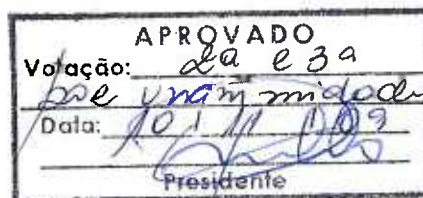 APROVADO
Votação: 2a e 3a
por unanimidade
Data: 10 / 11 / 09
Presidente